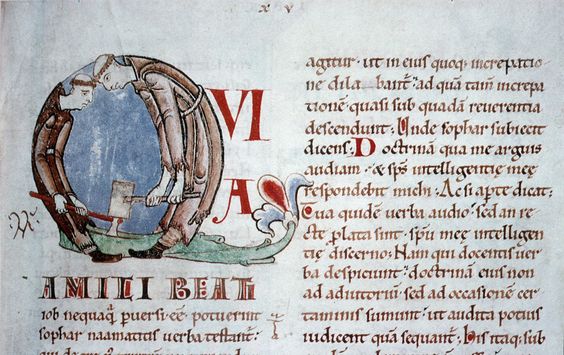 x v
QVI
A
AMICI BEATI
iob nequaq̃ pversi eẽ potuerint
sophar naamatites verba testant̃:
agitur. ut in eius quoq; increpatio
ne dilabant̃. ad quã tam̃ increpa
tionẽ quasi sub quadã reverentia
descendunt; Unde sophar subiecit
dicens; Doctrinã qua me arguis
audiam. & sp̃s intelligentię meę
respondebit michi; Ac si apte dicat;
Tua quidẽ verba audio. sed an re
cte plata sint. spũ meę intelligen
tię discerno; Nam qui docentis ver
ba despiciunt. doctrinã eius non
ad adiutoriũ sed ad occasionẽ cer
taminis sumunt. ut audita potius
iudicent quã sequant̃; His itaq; sub